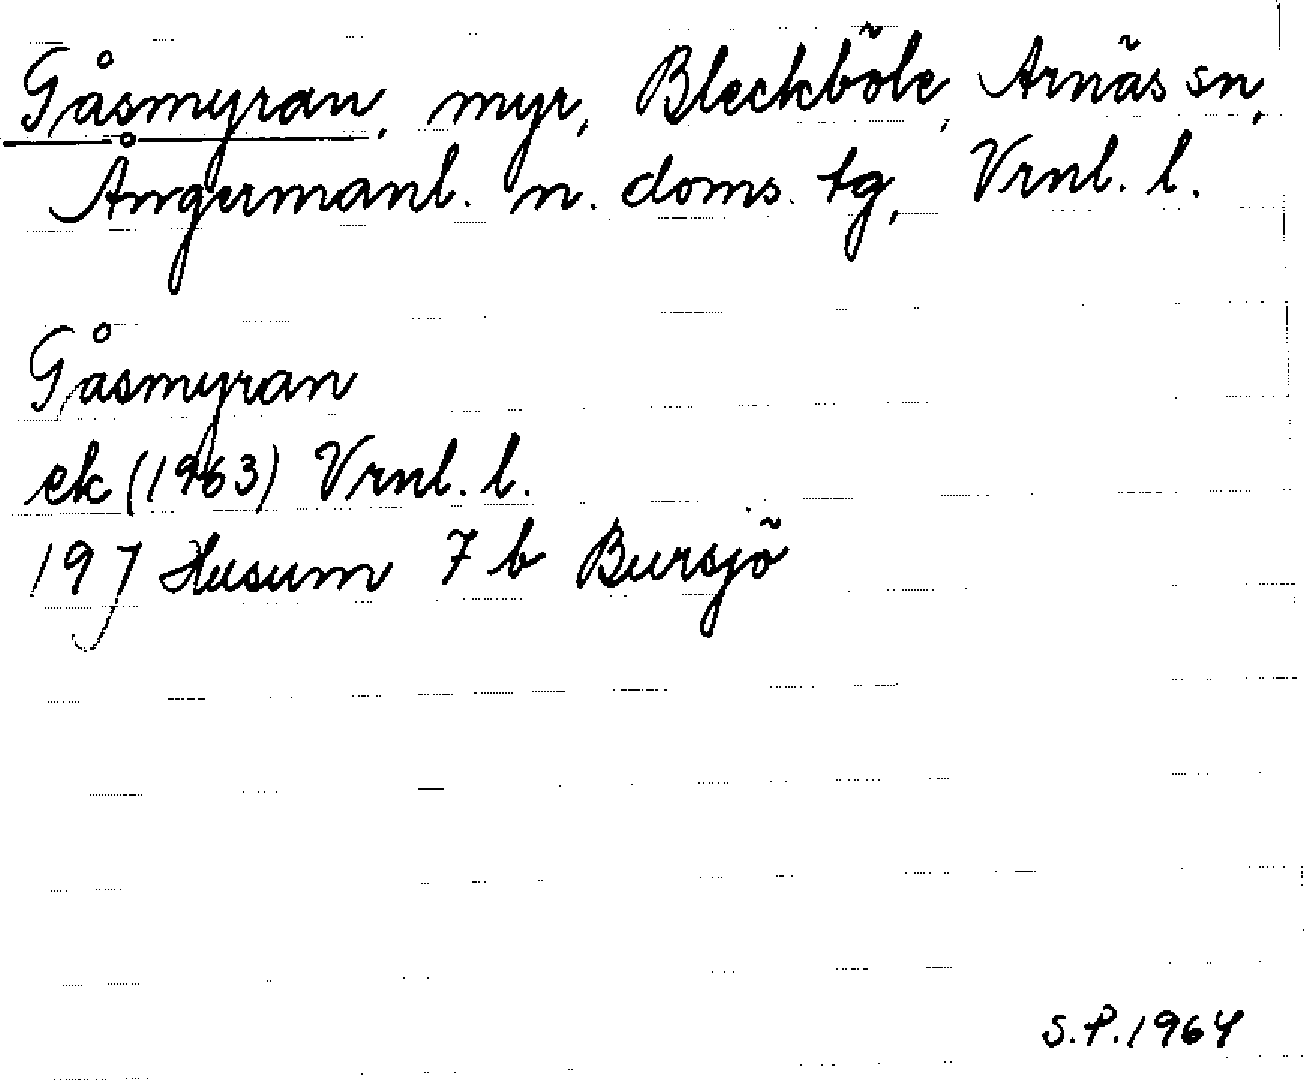 Gåsmyran, myr, Bleckböle, Arnäs sn,
Ångermanl. n. doms. tg, Vrnl. l.
Gåsmyran
ek (1963) Vrnl. l.
19 J Husum 7 b Bursjö
S.P. 1964